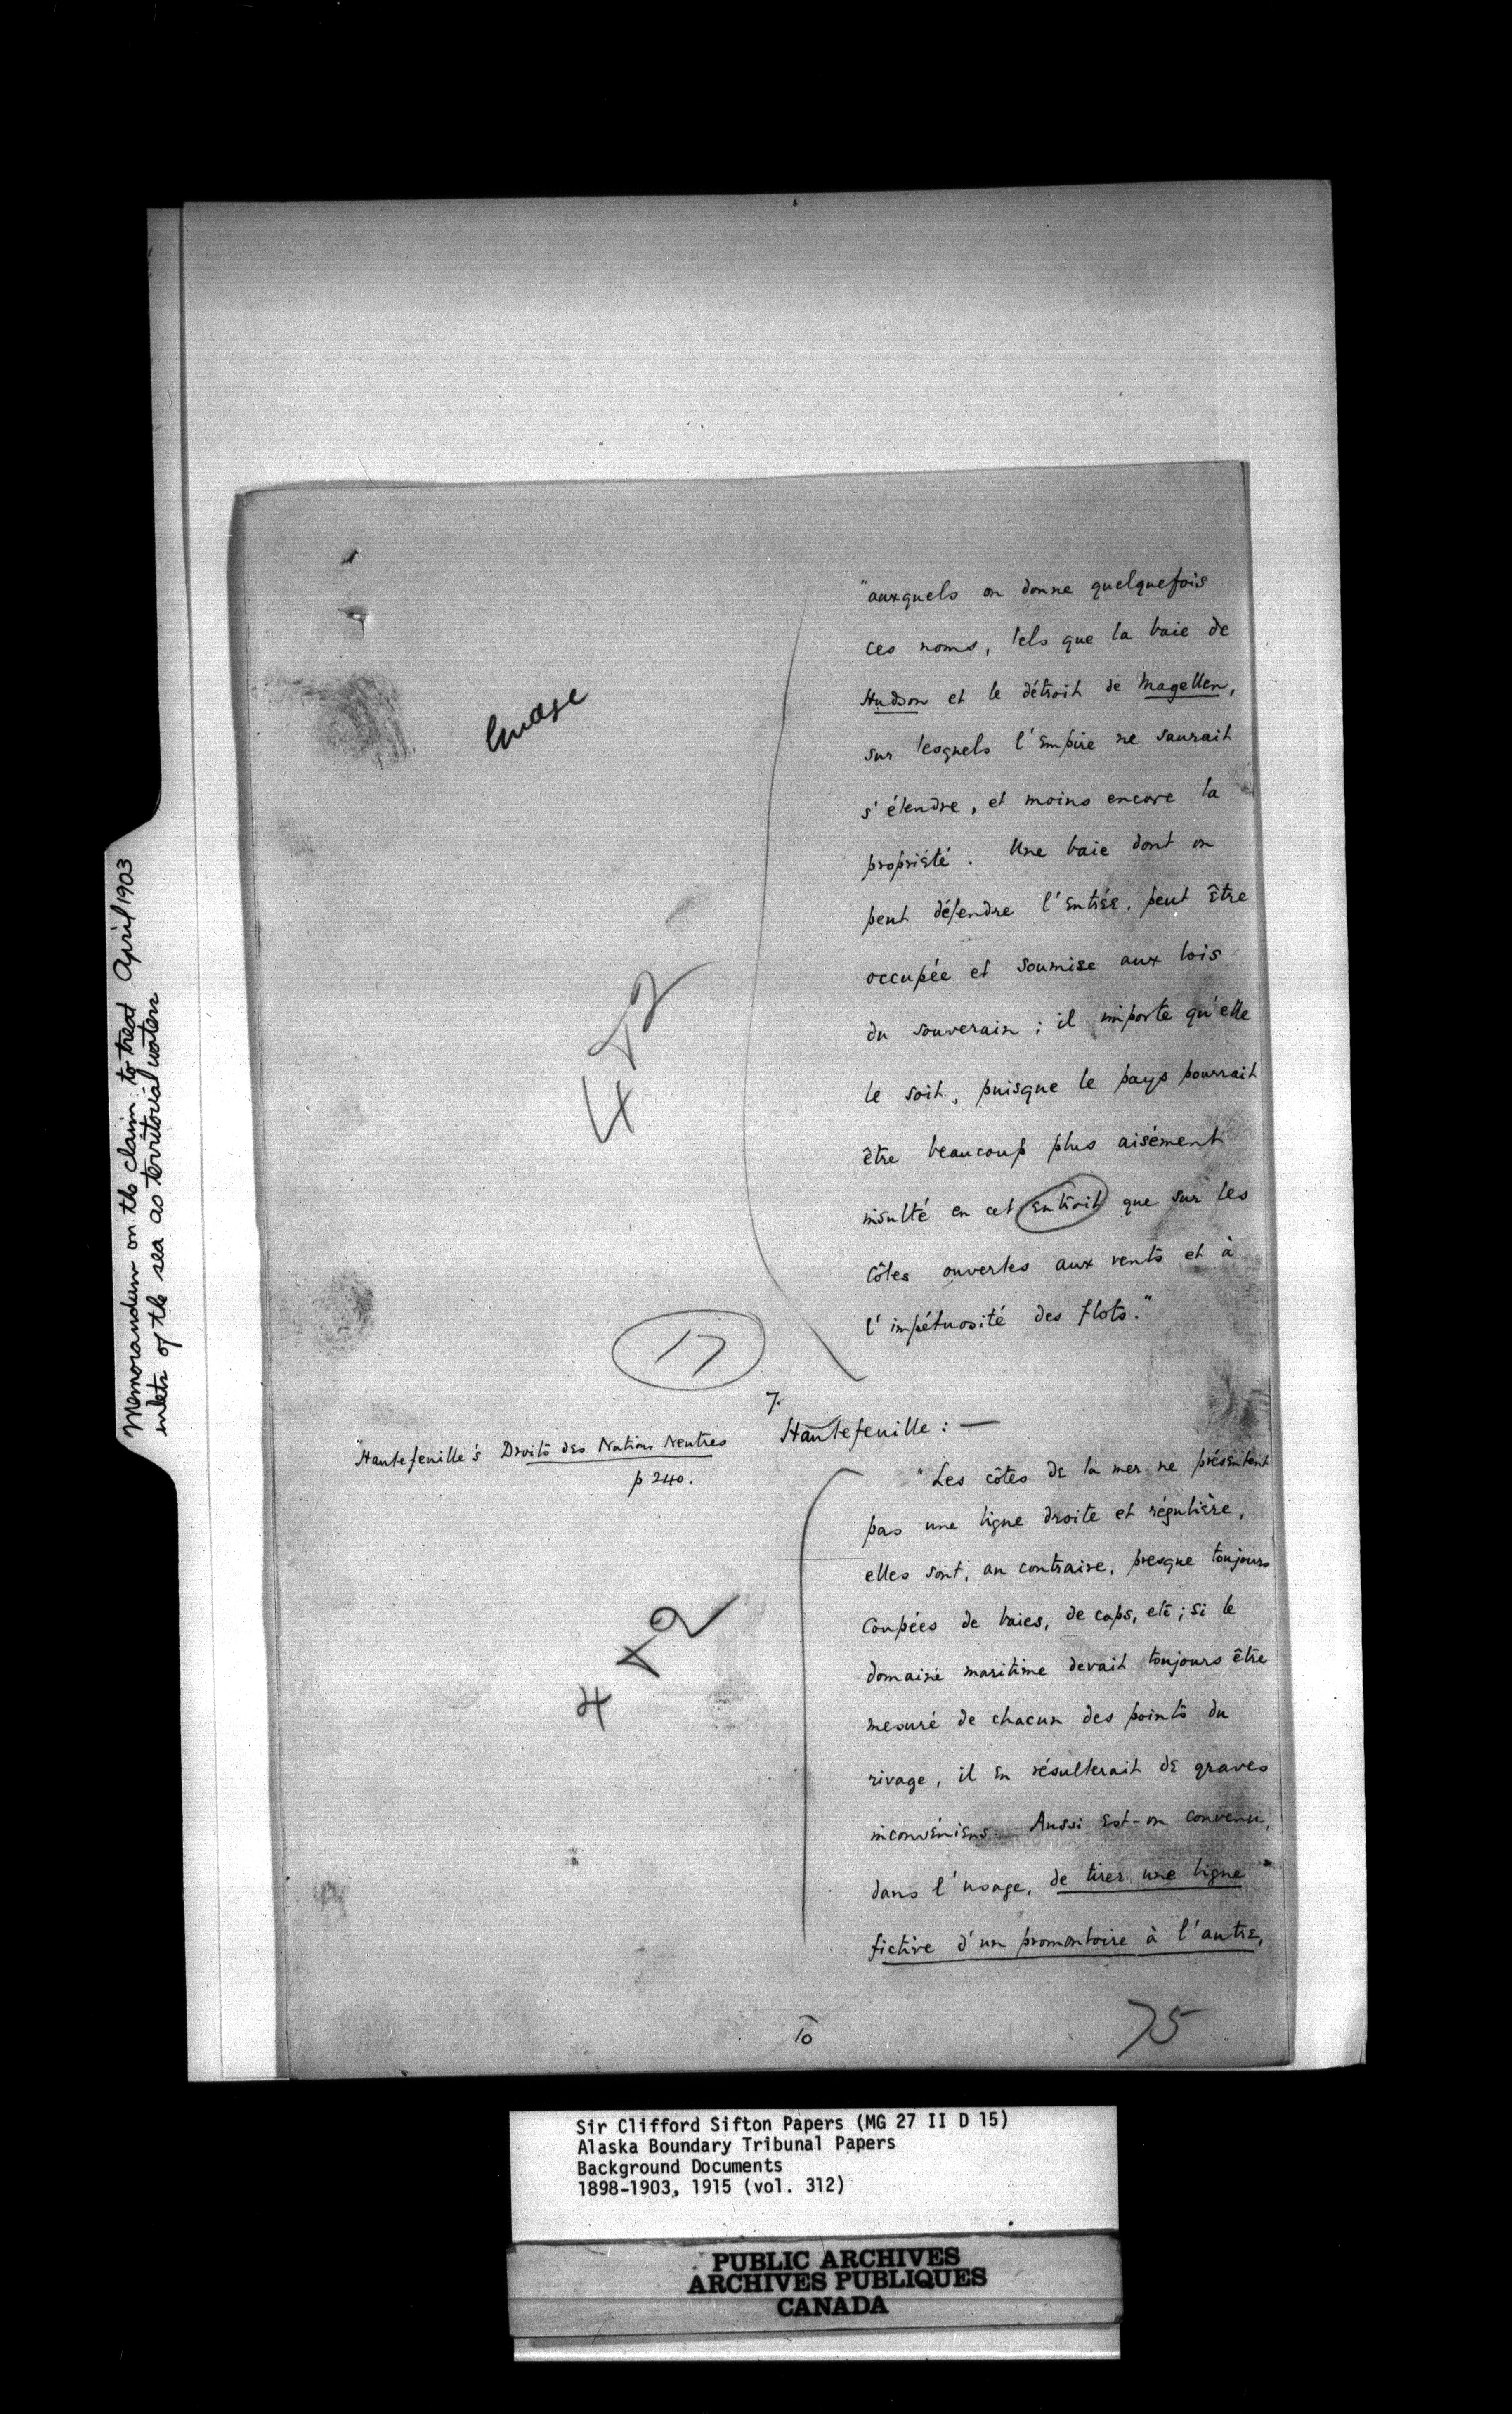 Memorandum on the claim to treat April 1903
inlets of the sea as territorial waters
"auxquels on donne quelquefois
ces noms, tels que la baie de
Hudson et le détroit de Magellan,
sur lesquels l'Empire ne saurait
s'étendre, et moins encore la
propriété. Une baie dont on
peut défendre l'entrée, peut être
occupée et soumise aux lois
du souverain; il importe qu'elle
le soit, puisque le pays pourrait
être beaucoup plus aisément
insulté en cet entroit que sur les
côtes ouvertes aux vents et à
l'impétuosité des flots."
17
7.
Hautefeuille's Droits des Nations Neutres
p 240.
Hautefeuille: —
"Les côtes de la mer ne présentent
pas une ligne droite et régulière,
elles sont, au contraire, presque toujours
coupées de baies, de caps, etc; si le
domaine maritime devait toujours être
mesuré de chacun des points du
rivage, il en résulterait de graves
inconvéniens. Aussi est-on convenu,
dans l'usage, de tirer une ligne
fictive d'un promontoire à l'autre,
10
75
Sir Clifford Sifton Papers (MG 27 II D 15)
Alaska Boundary Tribunal Papers
Background Documents
1898-1903, 1915 (vol. 312)
PUBLIC ARCHIVES
ARCHIVES PUBLIQUES
CANADA